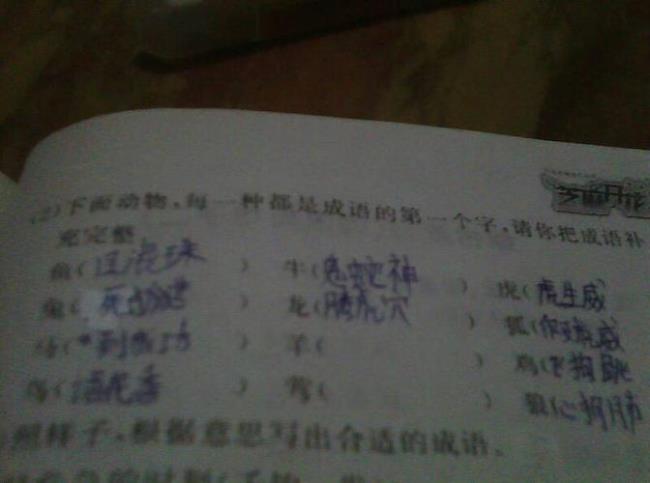 芝麻开花
(2)下面动物,每一种都是成语的第一个字,请你把成语补
充完整
鱼(目混珠) 牛(鬼蛇神) 虎(虎生威)
兔(死) 龙(腾虎穴) 狐(假威)
马(到成功) 羊( ) 鸡(飞狗跳)
鸟(语花香) 莺( ) 狼(心狗肺)
照样子,根据意思写出合适的成语。